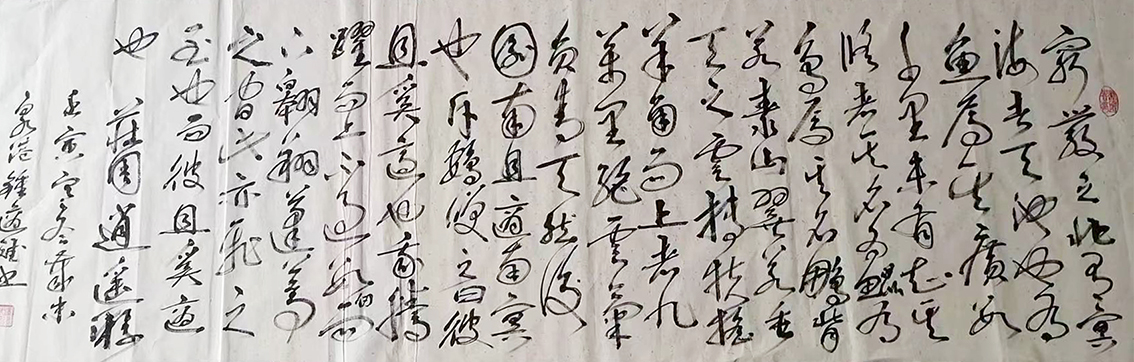 窮髮之北有冥
海者天池也有
魚焉其廣數
千里未有知其
修者其名為鯤有
鳥焉其名鵬背
若泰山翼若垂
天之雲摶扶搖
羊角而上者九
萬里絕雲氣
負青天然後
圖南且適南冥
也斥鴳笑之曰彼
且奚適也我騰
躍而上不過數仞而
下翱翔蓬蒿
之間此亦飛之
至也而彼且奚適
也 莊周逍遙遊
壬寅
泉港鍾